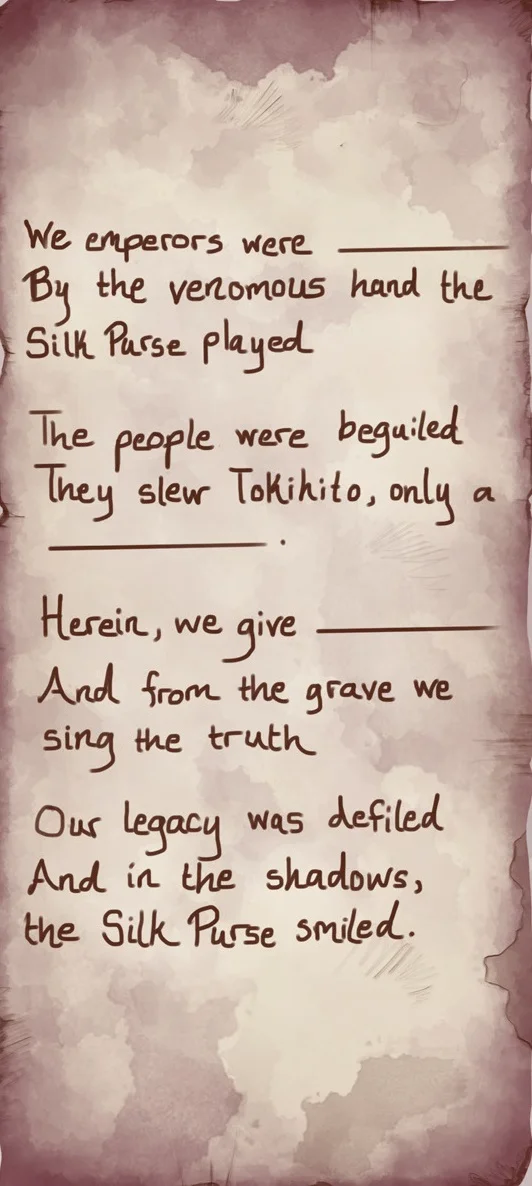 We emperors were ________
By the venomous hand the
Silk Purse played
The people were beguiled
They slew Tokihito, only a
________.
Herein, we give ________
And from the grave we
sing the truth
Our legacy was defiled
And in the shadows,
the Silk Purse smiled.